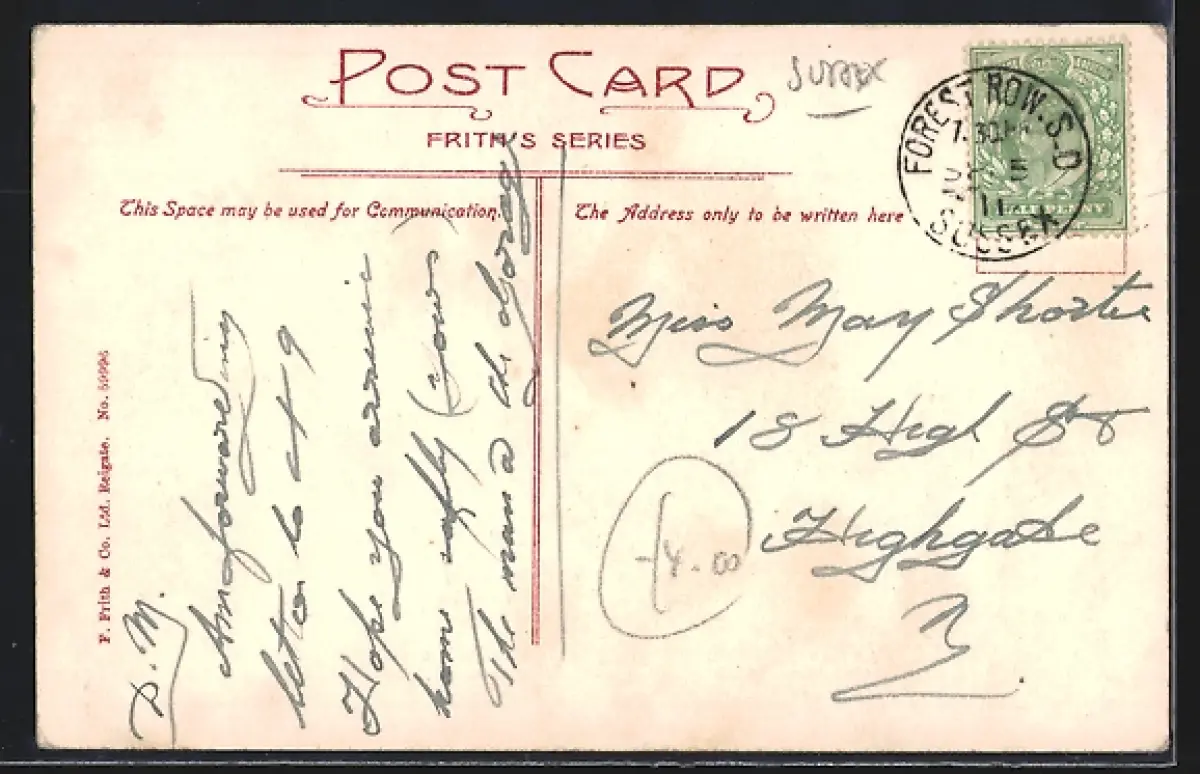 POST CARD
SUSSEX
FRITH'S SERIES
This Space may be used for Communication.
The Address only to be written here
FOREST ROW. S-O
7.30PM
5
11
SUSSEX
HALFPENNY
Miss May Shorter
18 High St
Highgate
N
£4.00
D. M.
Am forwarding
letter to at 9
Hope you arrive
home safely (yours)
The man
F. Frith & Co. Ltd. Reigate. No. 59996